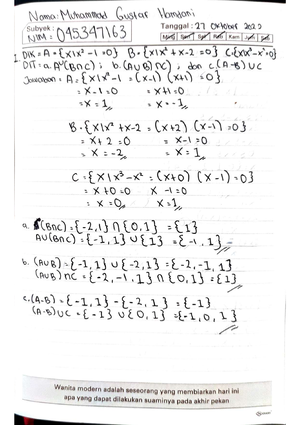 Nama: Muhammad Gustar Hamdani
Subyek: Tanggal: 27 Oktober 2022
NIM = 045347163
1. Dik = A = {x|x² - 1 = 0} B = {x|x² + x - 2 = 0} C = {x|x³ - x² = 0}
DIT = a. A∪(B∩C); b. (A∪B)∩C; dan c. (A-B)∪C
Jawaban = A = {x|x² - 1 = (x-1) (x+1) = 0}
= x - 1 = 0 = x + 1 = 0
= x = 1 = x = -1
B = {x|x² + x - 2 = (x+2) (x-1) = 0}
= x + 2 = 0 = x - 1 = 0
= x = -2 = x = 1
C = {x|x³ - x² = (x+0) (x-1) = 0}
= x + 0 = 0 x - 1 = 0
= x = 0 x = 1
a. (B∩C) = {-2, 1} ∩ {0, 1} = {1}
A∪(B∩C) = {-1, 1} ∪ {1} = {-1, 1}
b. (A∪B) = {-1, 1} ∪ {-2, 1} = {-2, -1, 1}
(A∪B)∩C = {-2, -1, 1} ∩ {0, 1} = {1}
c. (A-B) = {-1, 1} - {-2, 1} = {-1}
(A-B)∪C = {-1} ∪ {0, 1} = {-1, 0, 1}
Wanita modern adalah seseorang yang membiarkan hari ini
apa yang dapat dilakukan suaminya pada akhir pekan